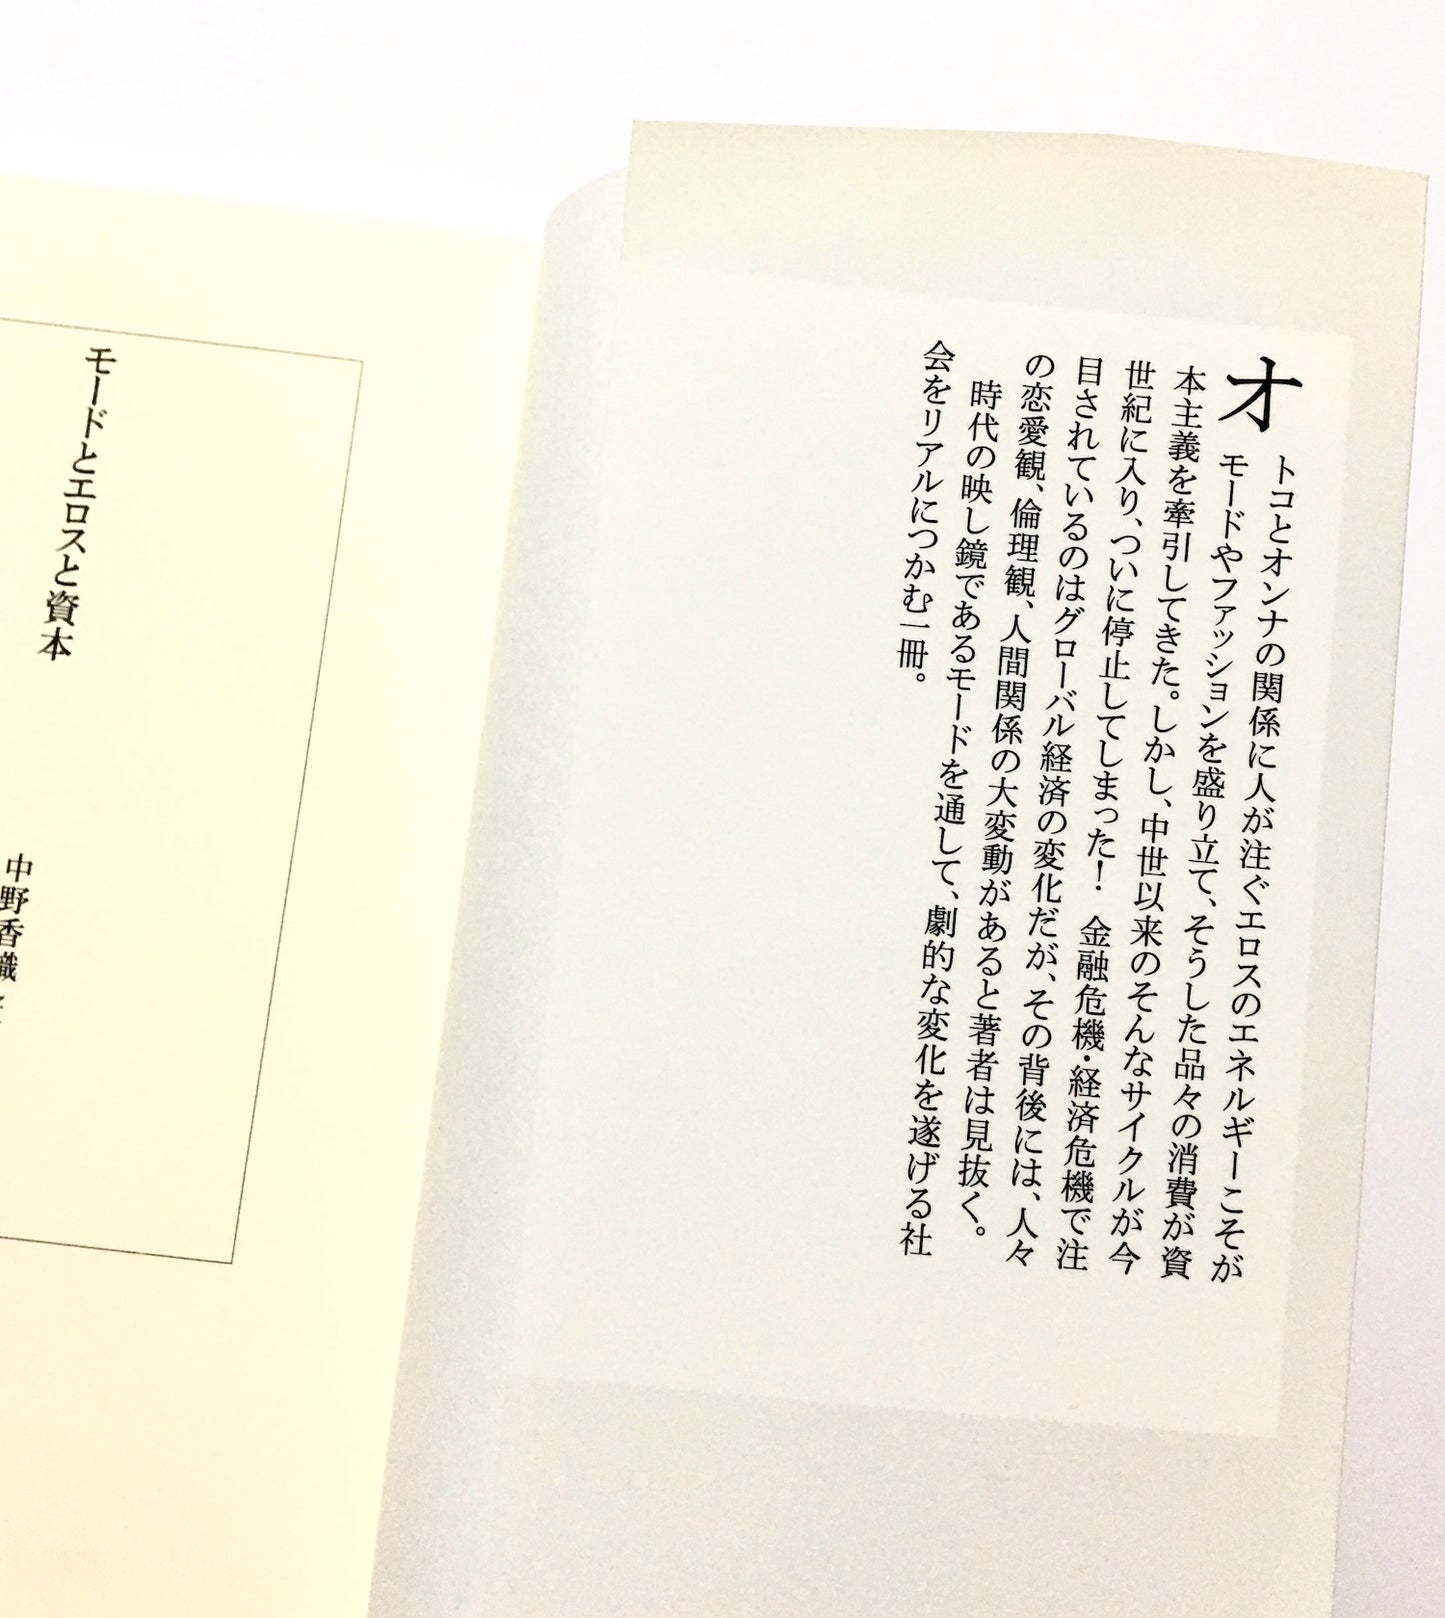 オトコとオンナの関係に人が注ぐエロスのエネルギーこそが
モードやファッションを盛り立て、そうした品々の消費が資
本主義を牽引してきた。しかし、中世以来のそんなサイクルが今
世紀に入り、ついに停止してしまった！　金融危機・経済危機で注
目されているのはグローバル経済の変化だが、その背後には、人々
の恋愛観、倫理観、人間関係の大変動があると著者は見抜く。
時代の映し鏡であるモードを通して、劇的な変化を遂げる社
会をリアルにつかむ一冊。
モードとエロスと資本
中野香織